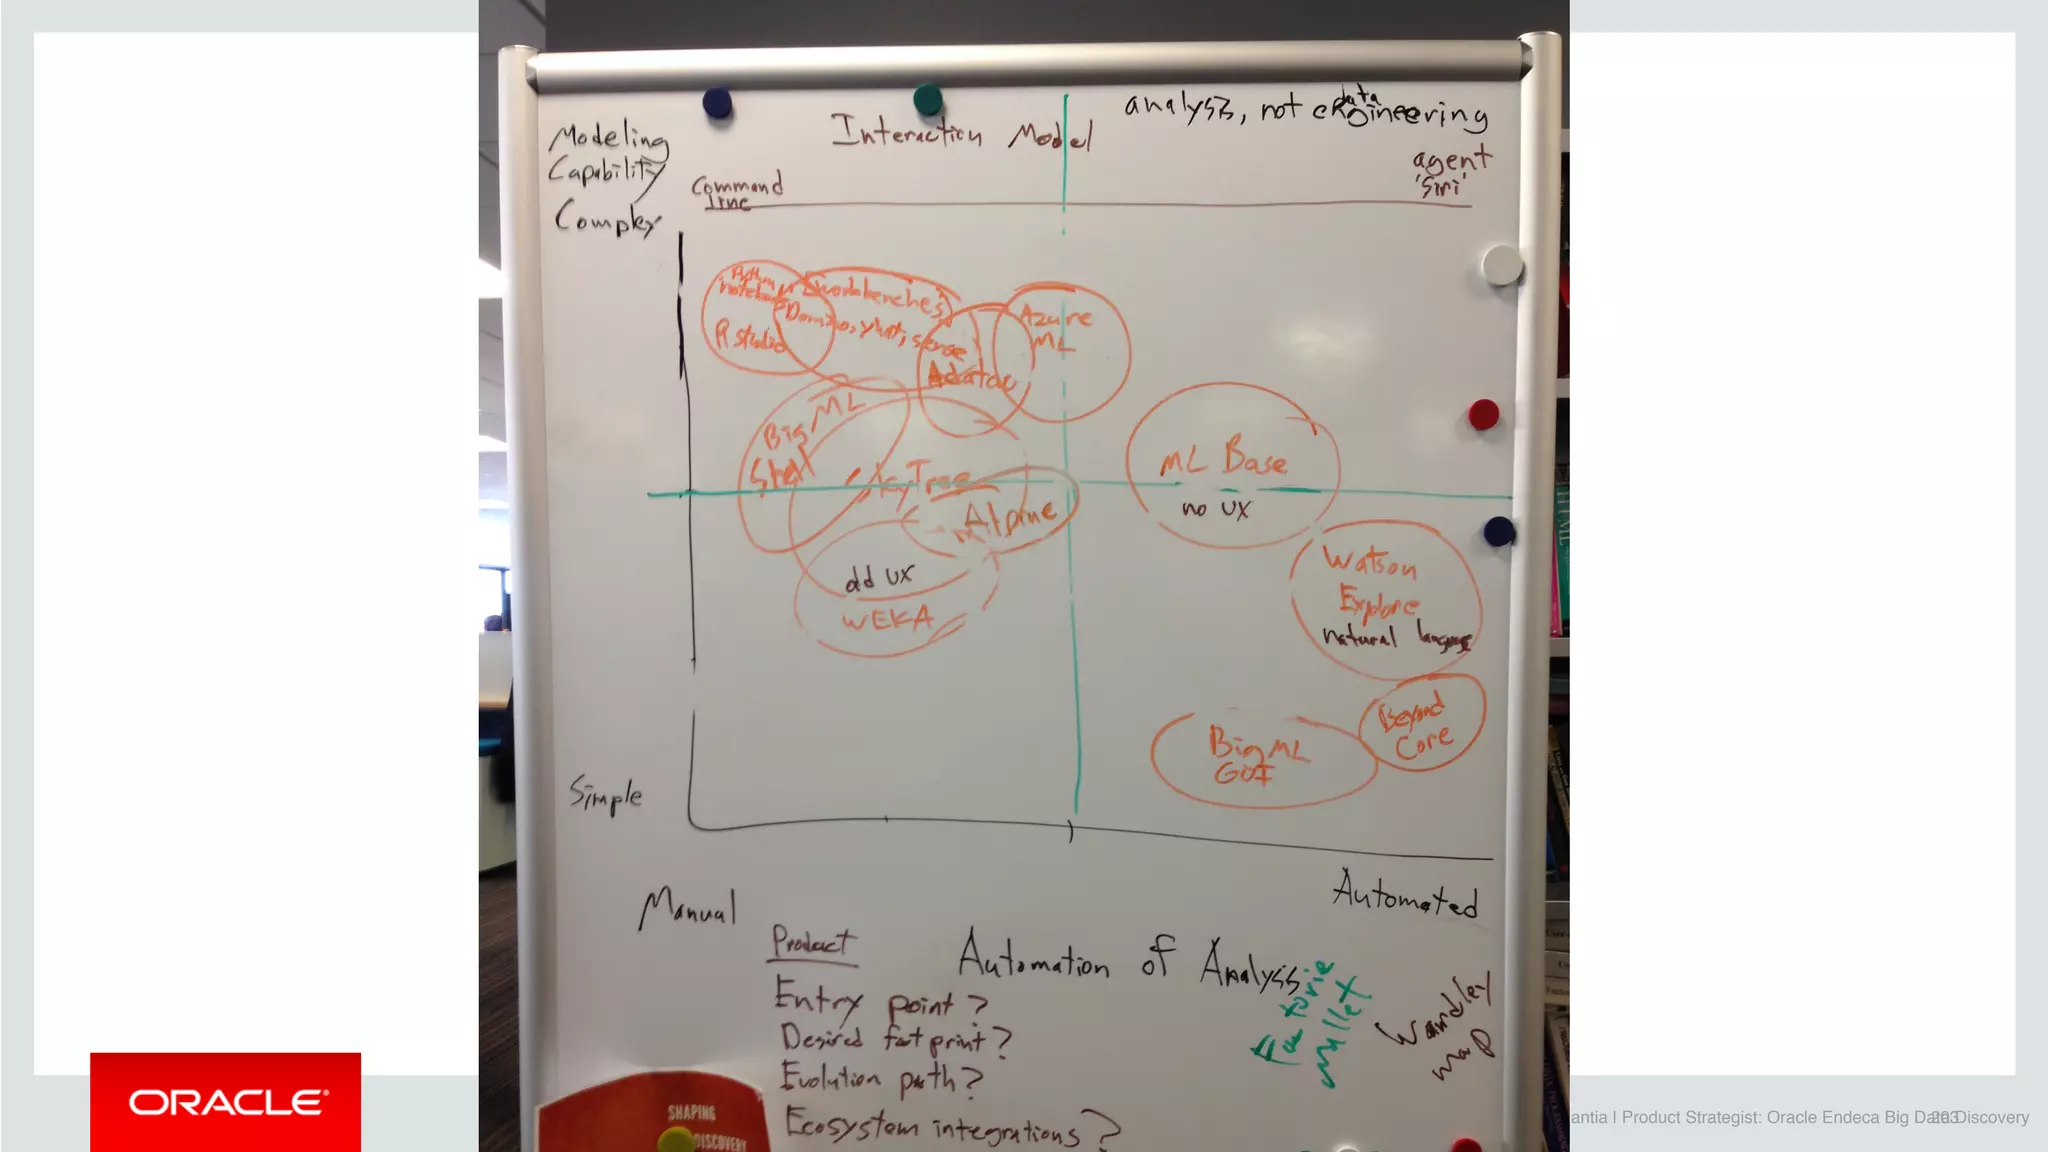 analysis, not data engineering
Interaction Model
Modeling
Capability
Complex
agent
'Siri'
Command
line
Python
notebook
R studio
workbenches
Domino, yhat, sense
Adatao
Azure
ML
Big ML
Shell
SkyTree
Alpine
ML Base
no UX
add UX
WEKA
Watson
Explore
natural language
Beyond
Core
BigML
GUI
Simple
Manual
Automated
Automation of Analysis
Product
Entry point?
Desired footprint?
Evolution path?
Ecosystem integrations?
Factorie
Mallet
Wardley
map
SHAPING
DISCOVERY
HTML
ORACLE
antia | Product Strategist: Oracle Endeca Big Data Discovery
203